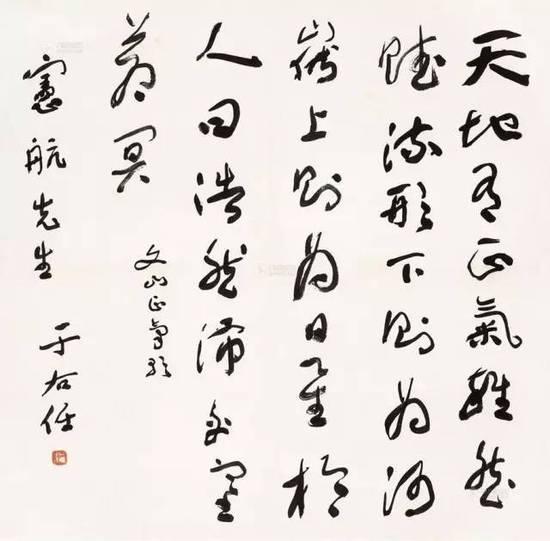 天地有正氣雜然
賦流形下則為河
嶽上則為日星於
人曰浩然沛乎塞
蒼冥
文山正氣歌
憲航先生 于右任